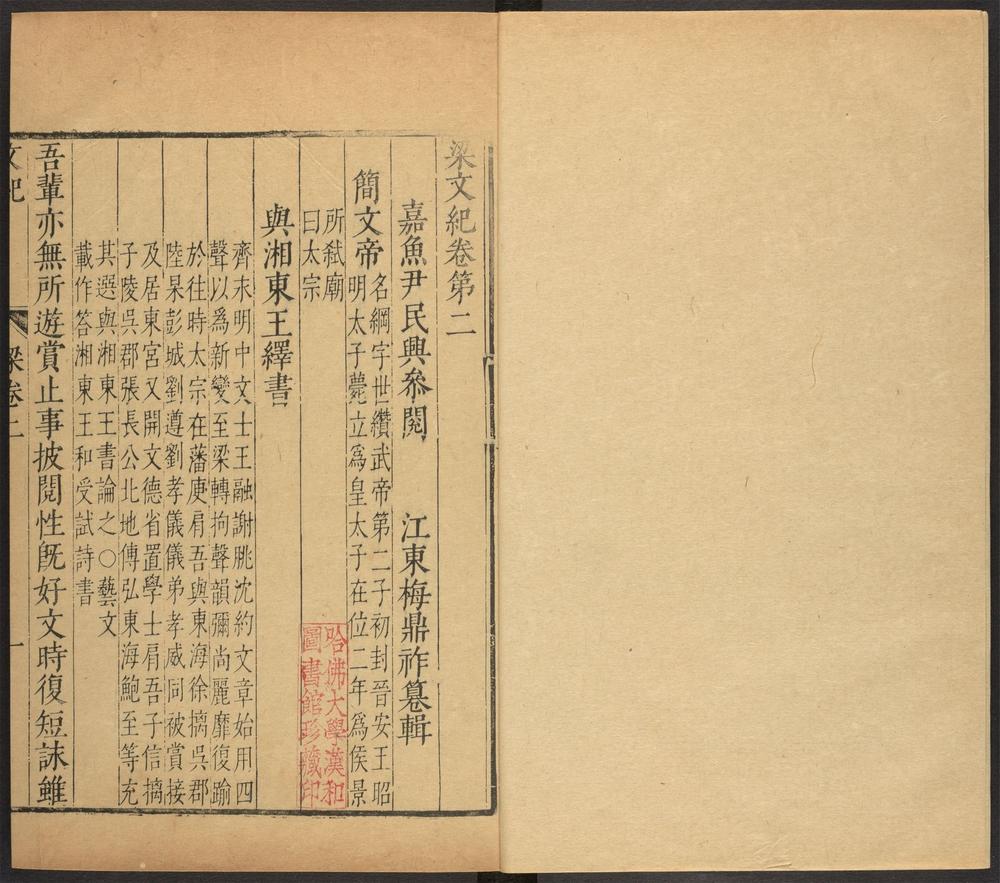 梁文紀卷第二
嘉魚尹民興叅閱　江東梅鼎祚纂輯
簡文帝
名綱字世纘武帝第二子初封晉安王昭
明太子薨立爲皇太子在位二年爲侯景
所弑廟
曰太宗
哈佛大學漢和
圖書館珍藏印
與湘東王繹書
齊末明中文士王融謝朓沈約文章始用四
聲以爲新變至梁轉拘聲韻彌尚麗靡復踰
於往時太宗在藩庾肩吾與東海徐摛吳郡
陸杲彭城劉遵劉孝儀儀弟孝威同被賞接
及居東宮又開文德省置學士肩吾子信摛
子陵吳郡張長公北地傅弘東海鮑至等充
其選與湘東王書論之〇藝文
載作答湘東王和受試詩書
吾輩亦無所遊賞止事披閱性旣好文時復短詠雖
文紀
梁卷二
一